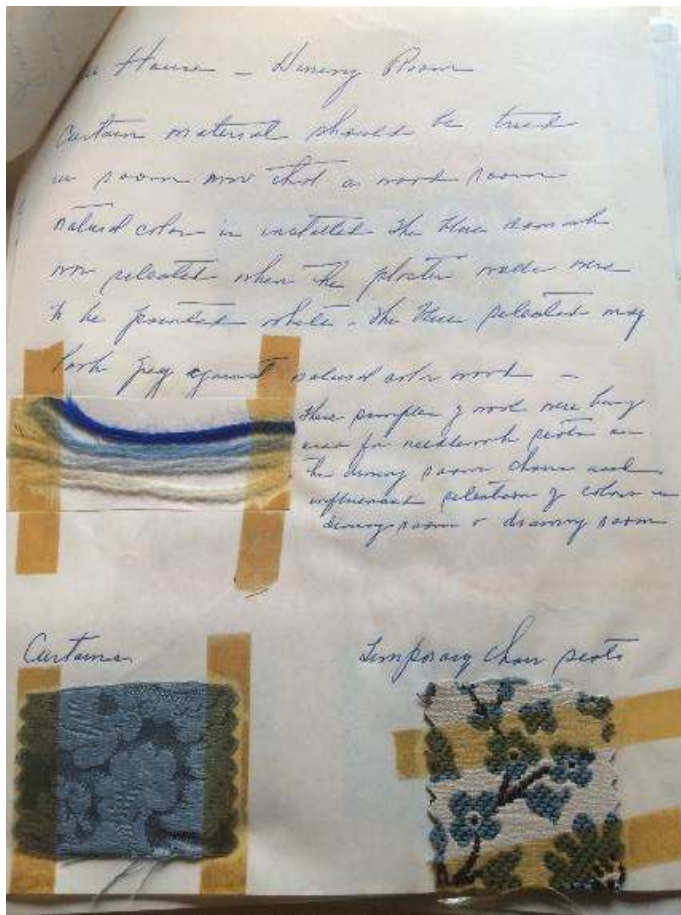 House - Dining Room
Curtain material should be tried
in room now that a wood room
natural color is installed The blue damask
was selected when the plaster walls were
to be painted white. The blue selected may
look gray against natural color wood -
These samples of wool were being
used for needlework seats on
the dining room chairs and
influenced selection of colors in
dining room & drawing room
Curtains
Temporary chair seats